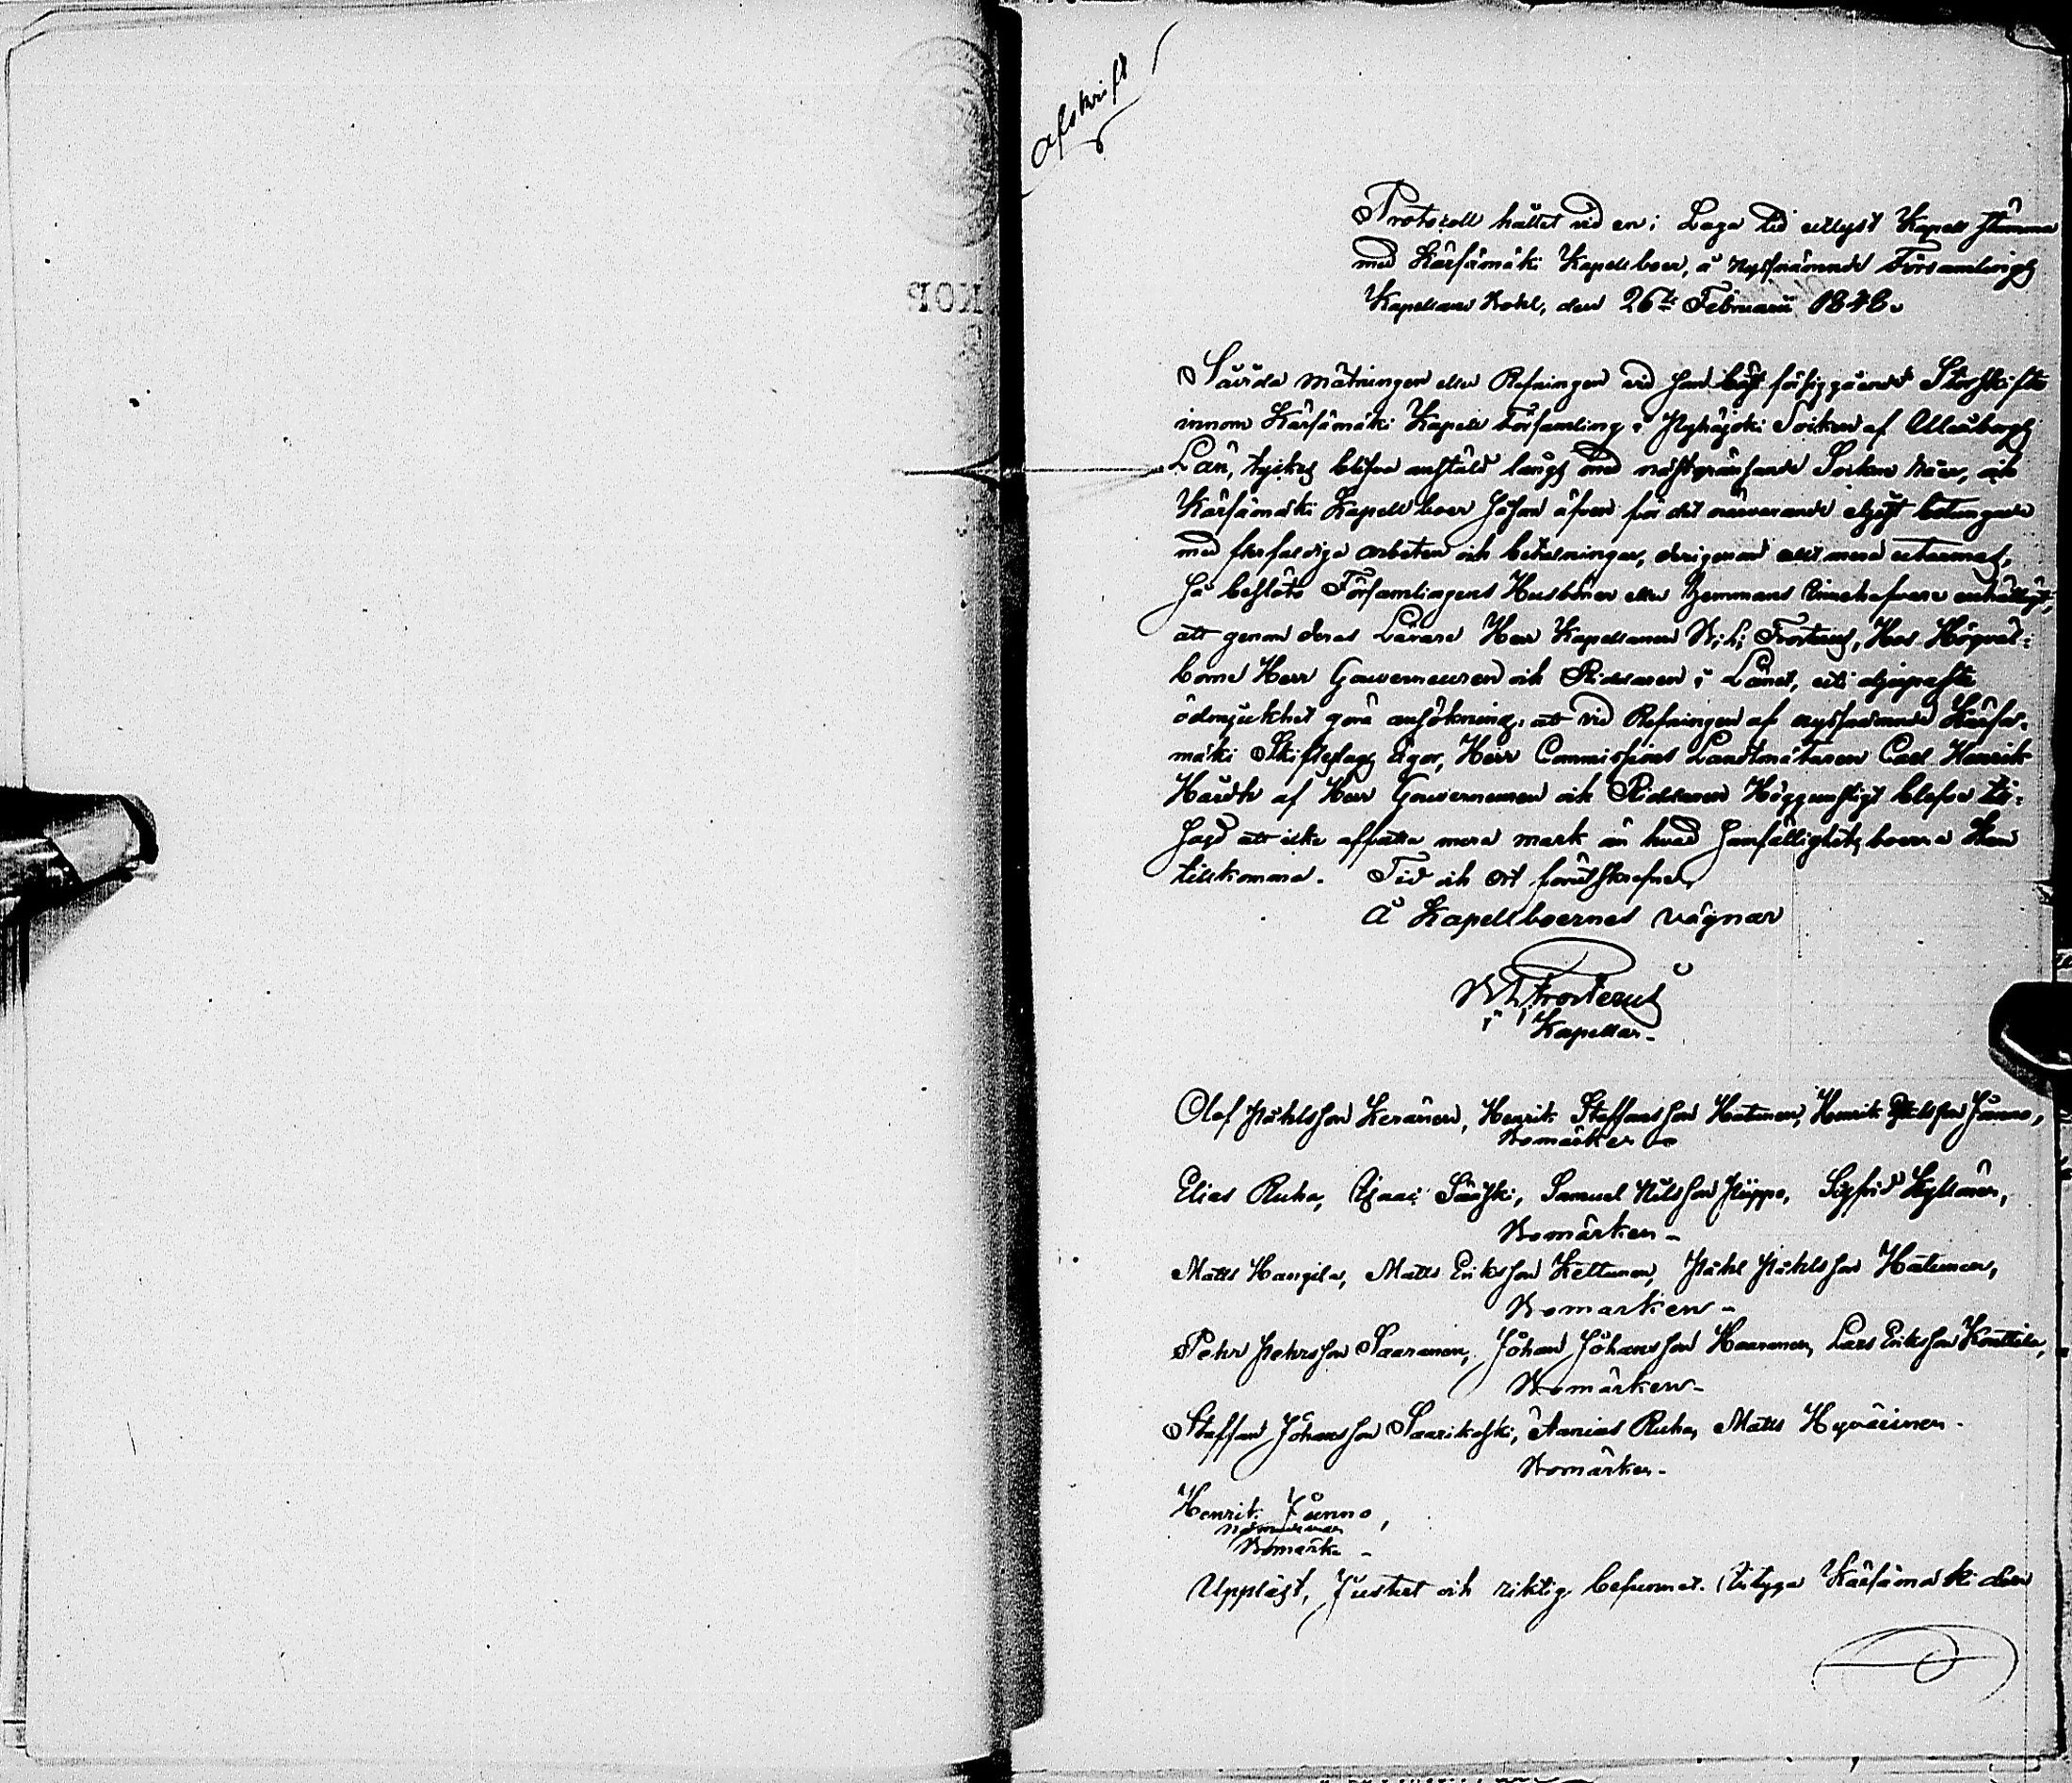 Afskrift
Protocoll hållet vid en i Laga tid utlyst Kapell stämma
med Kärsämäki Kapellboer, å nysnämnde Församlings
Kapellans Bohl, den 26te Februarii 1848.
Såvida mätningen eller Refningen vid försiggående Storskifte
innom Kärsämäki Kapell Församling i Pyhäjoki Socken af Uleåborgs
Län, tyckes blifva anstäld längs med nästgränsande Socknar, och
Kärsämäki Kapellboer såsom äfven för det närvarande betungade
med flerfaldiga arbeten och betalningar, derigenom allt mera utarmas,
så beslöto Församlingens Husbönder eller Hemmans Innehafvare enhälligt,
att genom deras Lärare Herr Kapellanen W: L: Frosterus, Hos Högväl-
borne Herr Gouverneuren och Riddaren i Länet, uti djupaste
ödmjukhet göra ansökning, att vid Refningen af nysnämnde Kärsä-
mäki Skifteslags Egor, Herr Commissions Landtmätaren Carl Henrik
Hårdh af Herr Gouverneuren och Riddaren Höggunstigt blefve till-
sagd att icke affatta mera mark än hvad Samfällighets boerne kan
tillkomma. Tid och ort förutskrefne.
Å Kapellboernes vägnar
W L Frosterus
Kapellan
Olof Påhlsson Keränen, Henrik Staffansson Hatunen, Henrik Junno,
Bomärken
Elias Ruha, Isaac Särski, Samuel Nilsson Piippo, Sigfrid Kyllönen,
Bomärken
Matts Hangila, Matts Eriksson Keltunen, Påhl Påhlsson Hatunen,
Bomärken
Pehr Pehrsson Saaranen, Johan Johansson Haaranen, Lars Eriksson Konttila,
Bomärken
Staffan Johansson Saarikoski, Ananias Ruha, Matts Hyvärinen.
Bomärken
Henrik Junno,
Bomärke
Uppläst, Justerat och riktig befunnet. Betyga Kärsämäki den